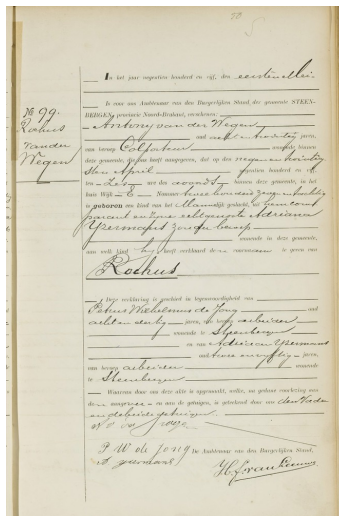 No 99.
Rochus
van der
Wegen
In het jaar negentien honderd en vijf, den eersten Mei
is voor ons Ambtenaar van den Burgerlijken Stand, der gemeente STEEN-
BERGEN, provincie Noord-Brabant, verschenen:
Antony van der Wegen
oud acht en twintig jaren,
van beroep Colporteur wonende binnen
deze gemeente, die ons heeft aangegeven, dat op den negen en twintig-
sten April negentien honderd en vijf
ten zes ure des avonds binnen deze gemeente, in het
huis Wijk E Nummer twee honderd zeven en tachtig
is geboren een kind van het Mannelijk geslacht, uit hem com-
parant en zijne echtgenoote Adriana
IJzermans zonder beroep
wonende in deze gemeente,
aan welk kind hij heeft verklaard den voornaam te geven van
Rochus
Deze verklaring is geschied in tegenwoordigheid van
Petrus Wilhelmus de Jong oud
acht en dertig jaren, van beroep arbeider
wonende te Steenbergen
en van Adriaan IJzermans
oud twee en vijftig jaren,
van beroep arbeider wonende
te Steenbergen
Waarvan door ons deze akte is opgemaakt, welke, na gedane voorlezing aan
den aangever en aan de getuigen, is geteekend door ons den Vader
en de beide getuigen.
P W de Jong De Ambtenaar van den Burgerlijken Stand,
A ijzermans